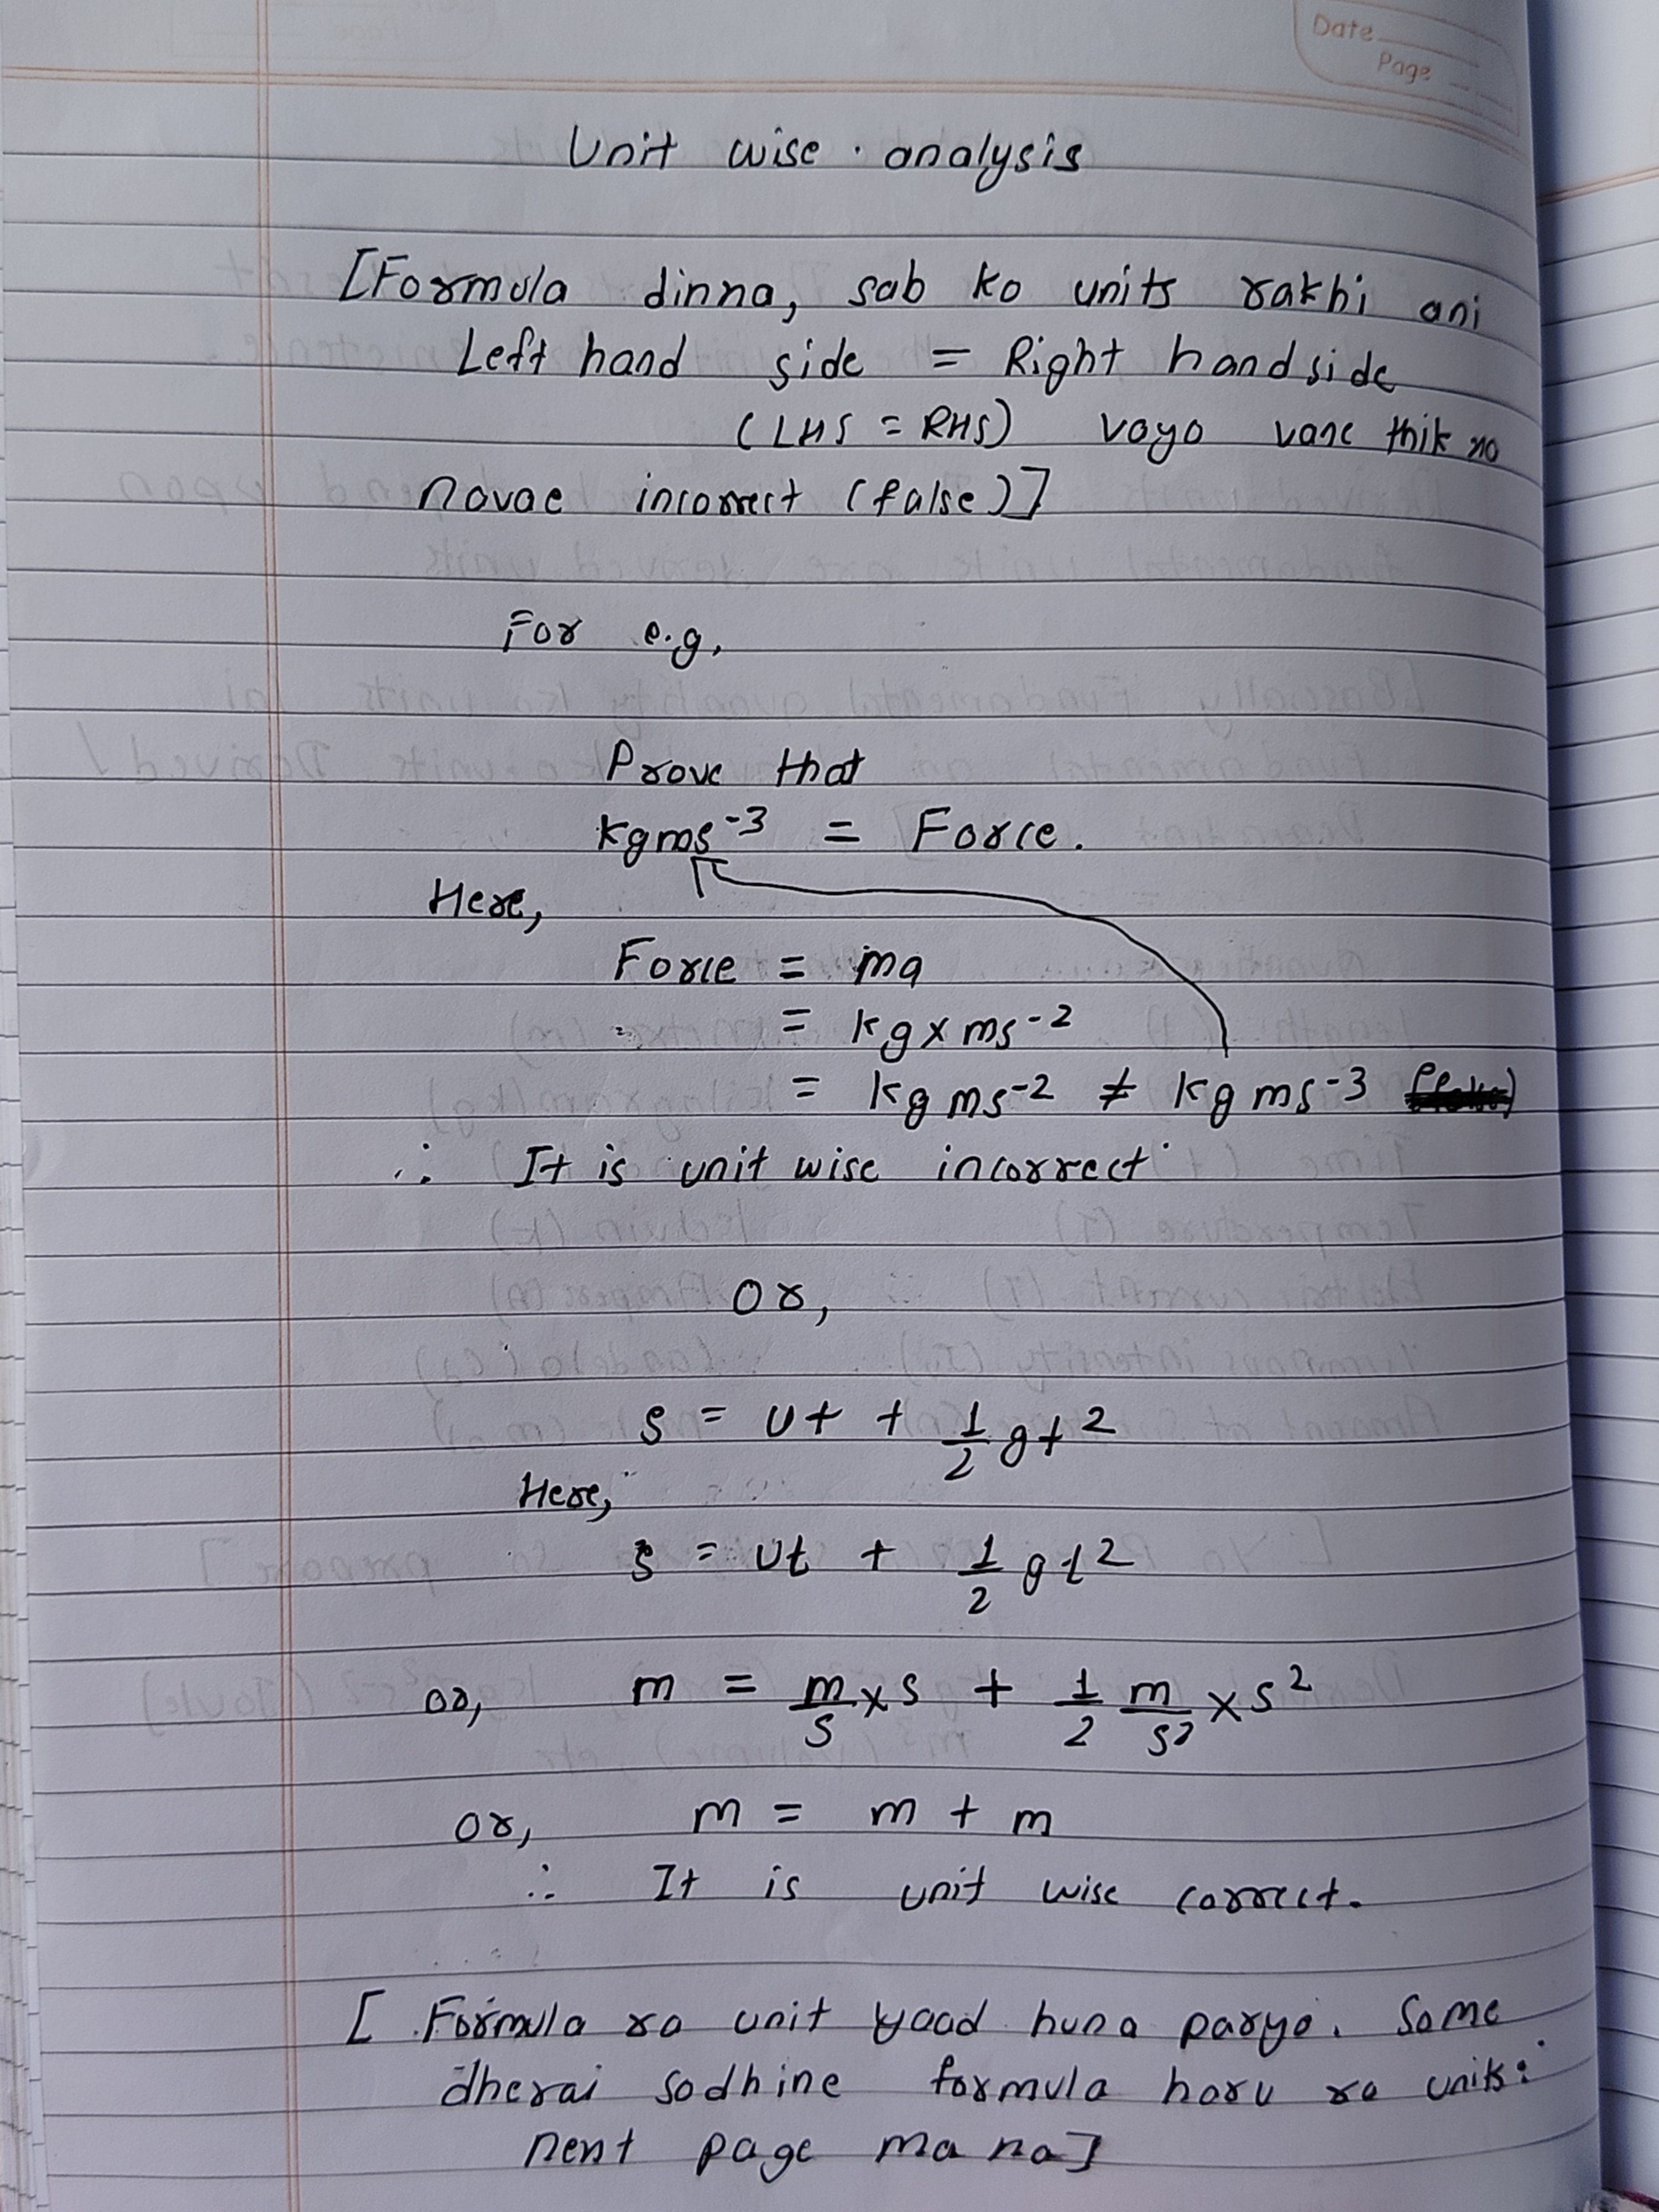 Date
Page
Unit wise . analysis
[Formula dinna, sab ko units rakhi ani
Left hand side = Right hand side
(LHS = RHS) voyo vane thik xo
novae incorrect (false)]
For e.g,
Prove that
kgms⁻³ = Force.
Here,
Force = ma
= kg x ms⁻²
= kg ms⁻² ≠ kg ms⁻³
∴ It is unit wise incorrect
Or,
s = ut + 1/2 gt²
Here,
s = ut + 1/2 gt²
or, m = m/s x s + 1/2 m/s² x s²
or, m = m + m
∴ It is unit wise correct.
[ Formula ra unit yaad huna paryo. Some
dherai sodhine formula haru ra units:
nent page ma xa]